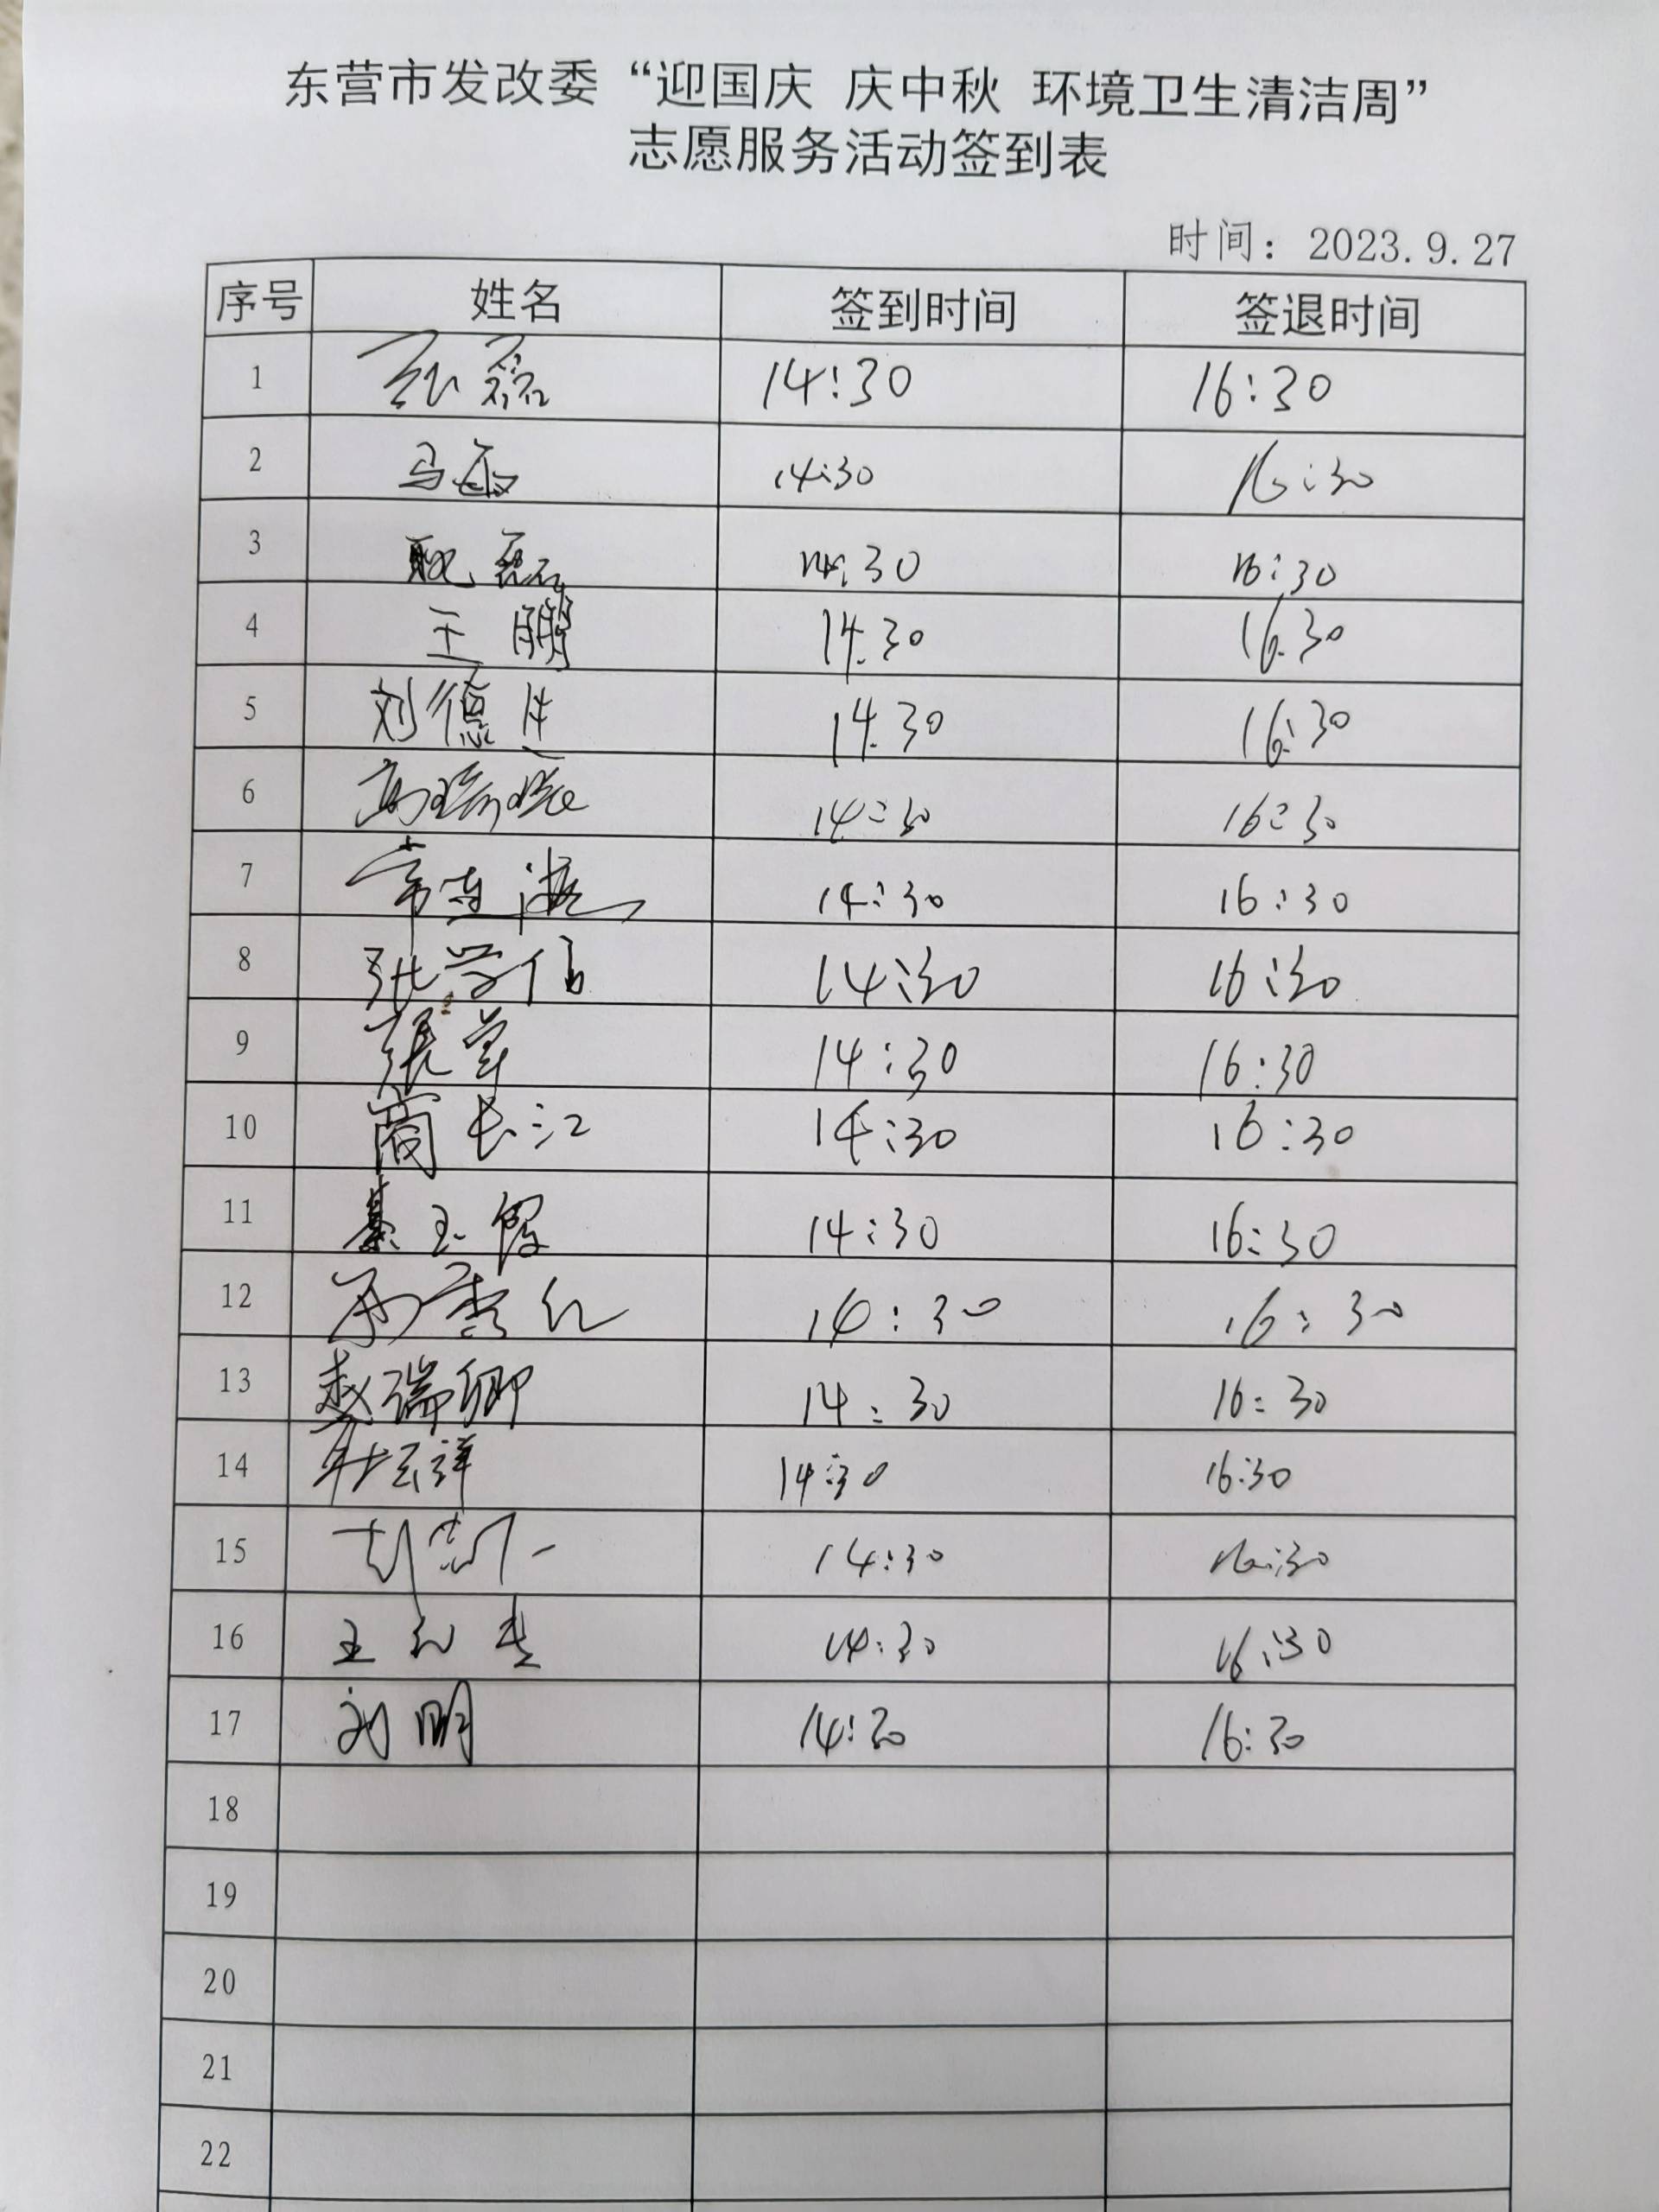 东营市发改委“迎国庆 庆中秋 环境卫生清洁周”
志愿服务活动签到表
时间：2023.9.27
序号 姓名 签到时间 签退时间
1 14:30 16:30
2 马 14:30 16:30
3 磊 14:30 16:30
4 王鹏 14.30 16.30
5 刘德 14.30 16:30
6 高瑞 14:30 16:30
7 常连海 14:30 16:30
8 张学信 14:30 16:30
9 张 14:30 16:30
10 商长江 14:30 16:30
11 綦玉霞 14:30 16:30
12 14:30 16:30
13 赵瑞卿 14:30 16:30
14 杜云祥 14:30 16:30
15 14:30 16:30
16 王 14:30 16:30
17 刘明 14:30 16:30
18
19
20
21
22